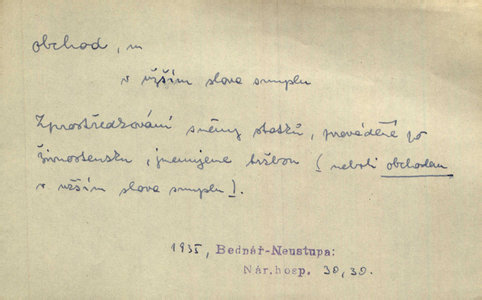 obchod, m
v užším slova smyslu
Zprostředkování směny statků, prováděné po
živnostensku, jmenujeme tržbou (neboli obchodem
v užším slova smyslu).
1935, Bednář-Neustupa:
Nár.hosp. 30,30.